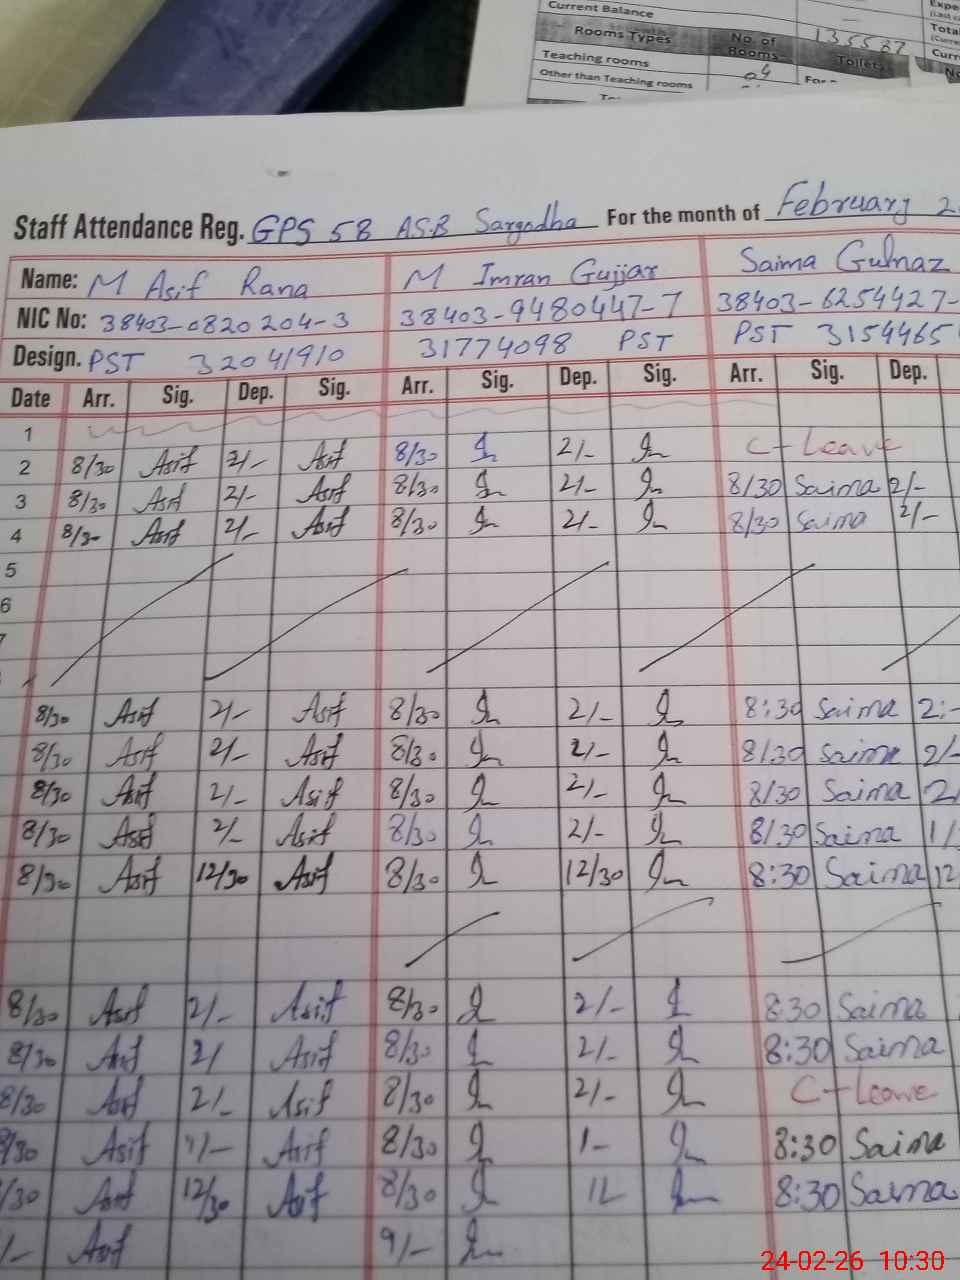 Current Balance
135587
Rooms Types No. of Rooms Toilets
Teaching rooms 04
Other than Teaching rooms
Staff Attendance Reg. GPS 58 ASB Sargodha For the month of February
Name: M Asif Rana M Imran Gujjar Saima Gulnaz
NIC No: 38403-0820204-3 38403-9480447-7 38403-6254427-
Design. PST 32041910 31774098 PST PST 3154465
Date Arr. Sig. Dep. Sig. Arr. Sig. Dep. Sig. Arr. Sig. Dep.
1
2 8/30 Asif 2/- Asif 8/30 2/- C-Leave
3 8/30 Asif 2/- Asif 8/30 2/- 8/30 Saima 2/-
4 8/30 Asif 2/- Asif 8/30 2/- 8/30 Saima 2/-
5
6
7
8/30 Asif 2/- Asif 8/30 2/- 8:30 Saima 2:-
8/30 Asif 2/- Asif 8/30 2/- 8/30 Saima 2/-
8/30 Asif 2/- Asif 8/30 2/- 8/30 Saima 2/
8/30 Asif 2/- Asif 8/30 2/- 8/30 Saima 1/
8/30 Asif 12/30 Asif 8/30 12/30 8:30 Saima 12
8/30 Asif 2/- Asif 8/30 2/- 8:30 Saima
8/30 Asif 2/ Asif 8/30 2/- 8:30 Saima
8/30 Asif 2/- Asif 8/30 2/- C-Leave
8/30 Asif Asif 8/30 1- 8:30 Saima
/30 Asif 12/30 Asif 8/30 12 8:30 Saima
/- Asif 9/-
24-02-26 10:30